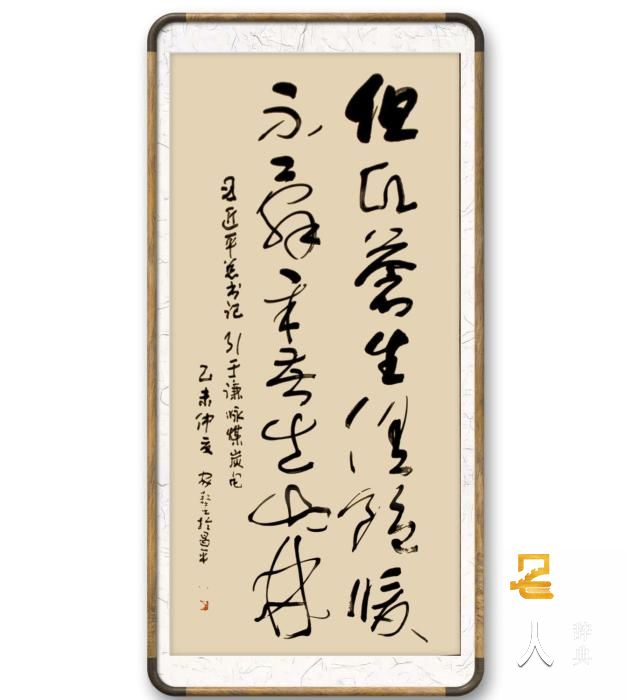 但願蒼生俱飽暖
不辭辛苦出山林
习近平总书记引于谦咏煤炭句
乙未仲夏 於昌平
名人
辞典